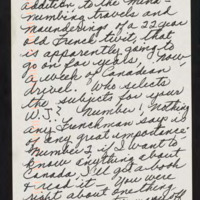 addition to the mind-
numbing travels and
maunderings of a 22 year
old French twit, that
is apparently going to
go on for years, now
a week of Canadian
drivel. Who selects
the subjects for your
W.S.? Number 1. Nothing
any Frenchman saw is
of any great importance
Number 2 if I want to
know anything about
Canada I'll get a book
& read it - You were
right about one thing